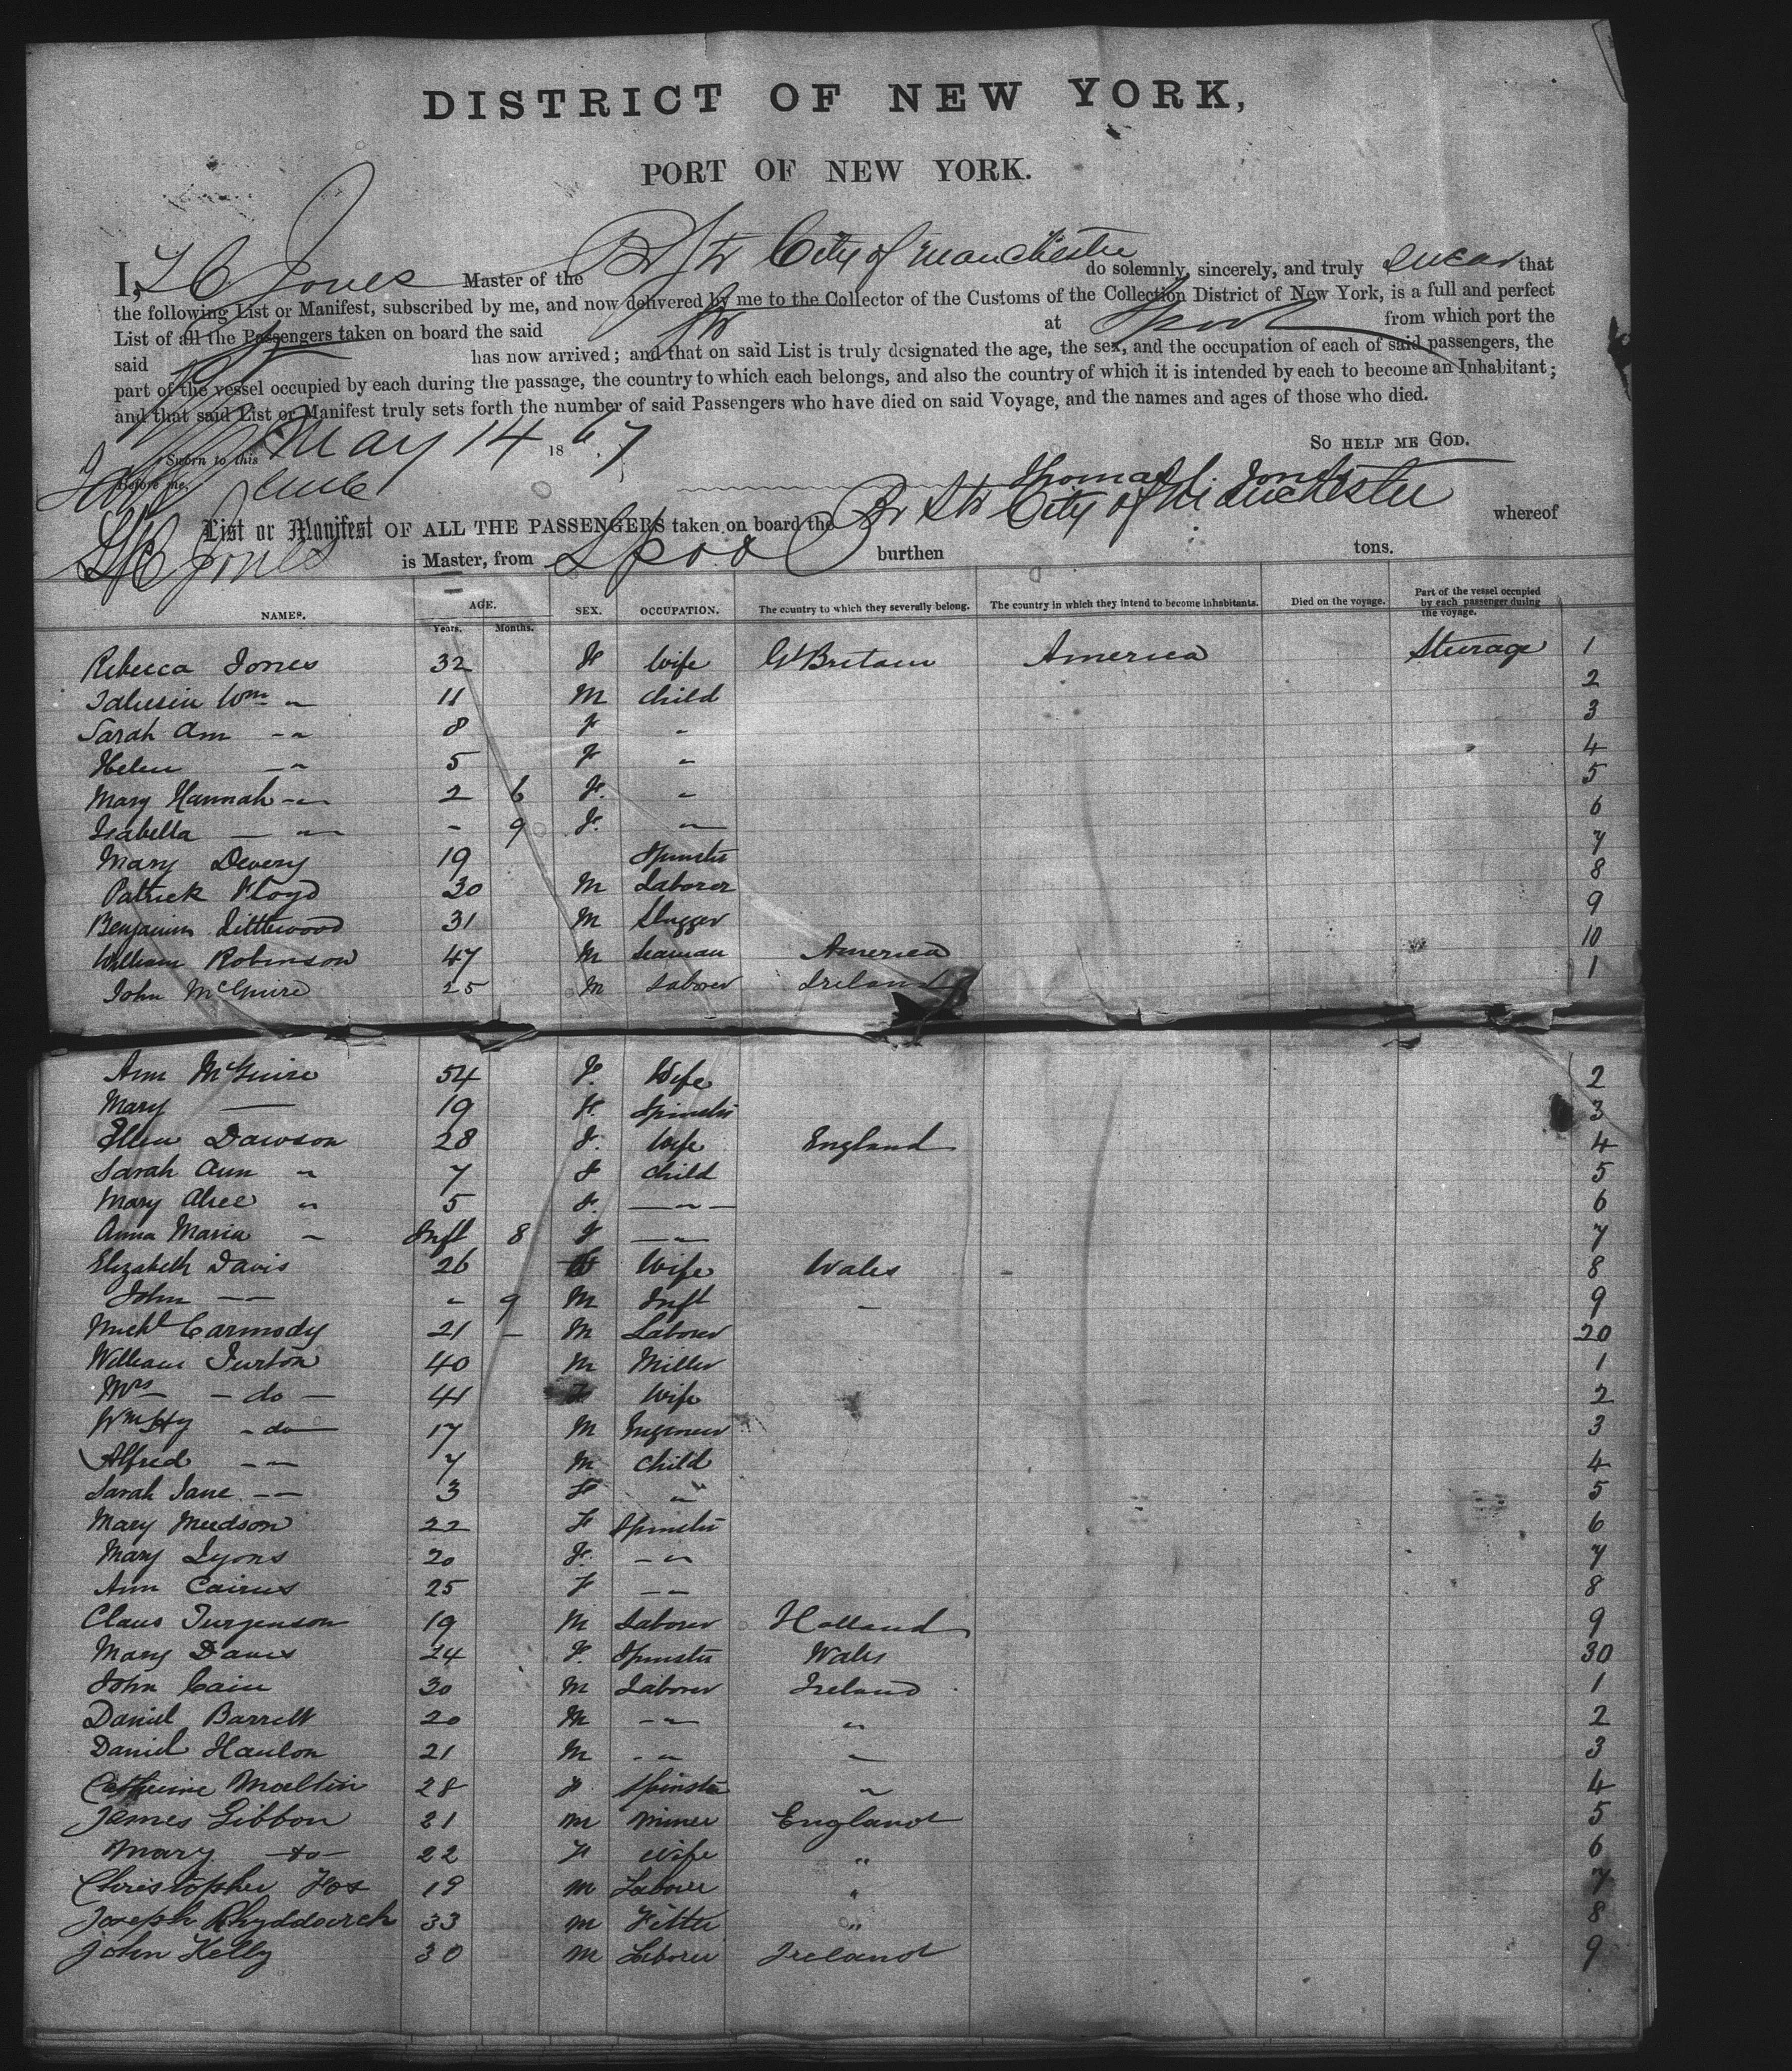 DISTRICT OF NEW YORK,
PORT OF NEW YORK.
I, T C Jones Master of the Br Str City of Manchester do solemnly, sincerely, and truly swear that
the following List or Manifest, subscribed by me, and now delivered by me to the Collector of the Customs of the Collection District of New York, is a full and perfect
List of all the Passengers taken on board the said Str at Lpool from which port the
said Str has now arrived; and that on said List is truly designated the age, the sex, and the occupation of each of said passengers, the
part of the vessel occupied by each during the passage, the country to which each belongs, and also the country of which it is intended by each to become an Inhabitant;
and that said List or Manifest truly sets forth the number of said Passengers who have died on said Voyage, and the names and ages of those who died.
Sworn to this May 14 1867
So HELP ME GOD.
Before me,
Thomas C. Jones
List or Manifest OF ALL THE PASSENGERS taken on board the Br Str City of Manchester whereof
T C Jones is Master, from Lpool burthen tons.
NAMES. AGE. SEX. OCCUPATION. The country to which they severally belong. The country in which they intend to become inhabitants. Died on the voyage. Part of the vessel occupied by each passenger during the voyage.
Years. Months.
Rebecca Jones 32 F Wife Gt Britain America Steerage 1
Taliesin Wm " 11 M Child 2
Sarah Ann - " 8 F " 3
Helen - " 5 F " 4
Mary Hannah - " 2 6 F. " 5
Isabella - " - 9 F. " 6
Mary Devery 19 Spinster 7
Patrick Floyd 30 M Laborer 8
Benjamin Littlewood 31 M 9
William Robinson 47 M Seaman America 10
John McGuire 25 M Laborer Ireland 1
Ann McGuire 54 F. Wife 2
Mary — 19 F. Spinster 3
Ellen Dawson 28 F. Wife England 4
Sarah Ann " 7 F Child 5
Mary Alice " 5 F. — " — 6
Anna Maria - Inft 8 F — " 7
Elizabeth Davis 26 F Wife Wales 8
John — - 9 M Inft - 9
Michl Carmody 21 - M Laborer 20
William Turton 40 M Miller 1
Mrs - do - 41 F Wife 2
Wm Hy - do - 17 M Engineer 3
Alfred - " 7 M Child 4
Sarah Jane - - 3 F " 5
Mary 22 F Spinster 6
Mary Lyons 20 F. - " 7
Ann Cairns 25 F - - 8
Claus Jurgenson 19 M Laborer Holland 9
Mary Davis 24 F. Spinster Wales 30
John Cain 30 M Laborer Ireland 1
Daniel Barrett 20 M - " " 2
Daniel Hanlon 21 M - " " 3
Catherine 28 F Spinster " 4
James Gibbon 21 M Miner England 5
Mary - do - 22 F Wife " 6
Christopher Fox 19 M Laborer " 7
Joseph Rhydderch 33 M Fitter " 8
John Kelly 30 M Laborer Ireland 9